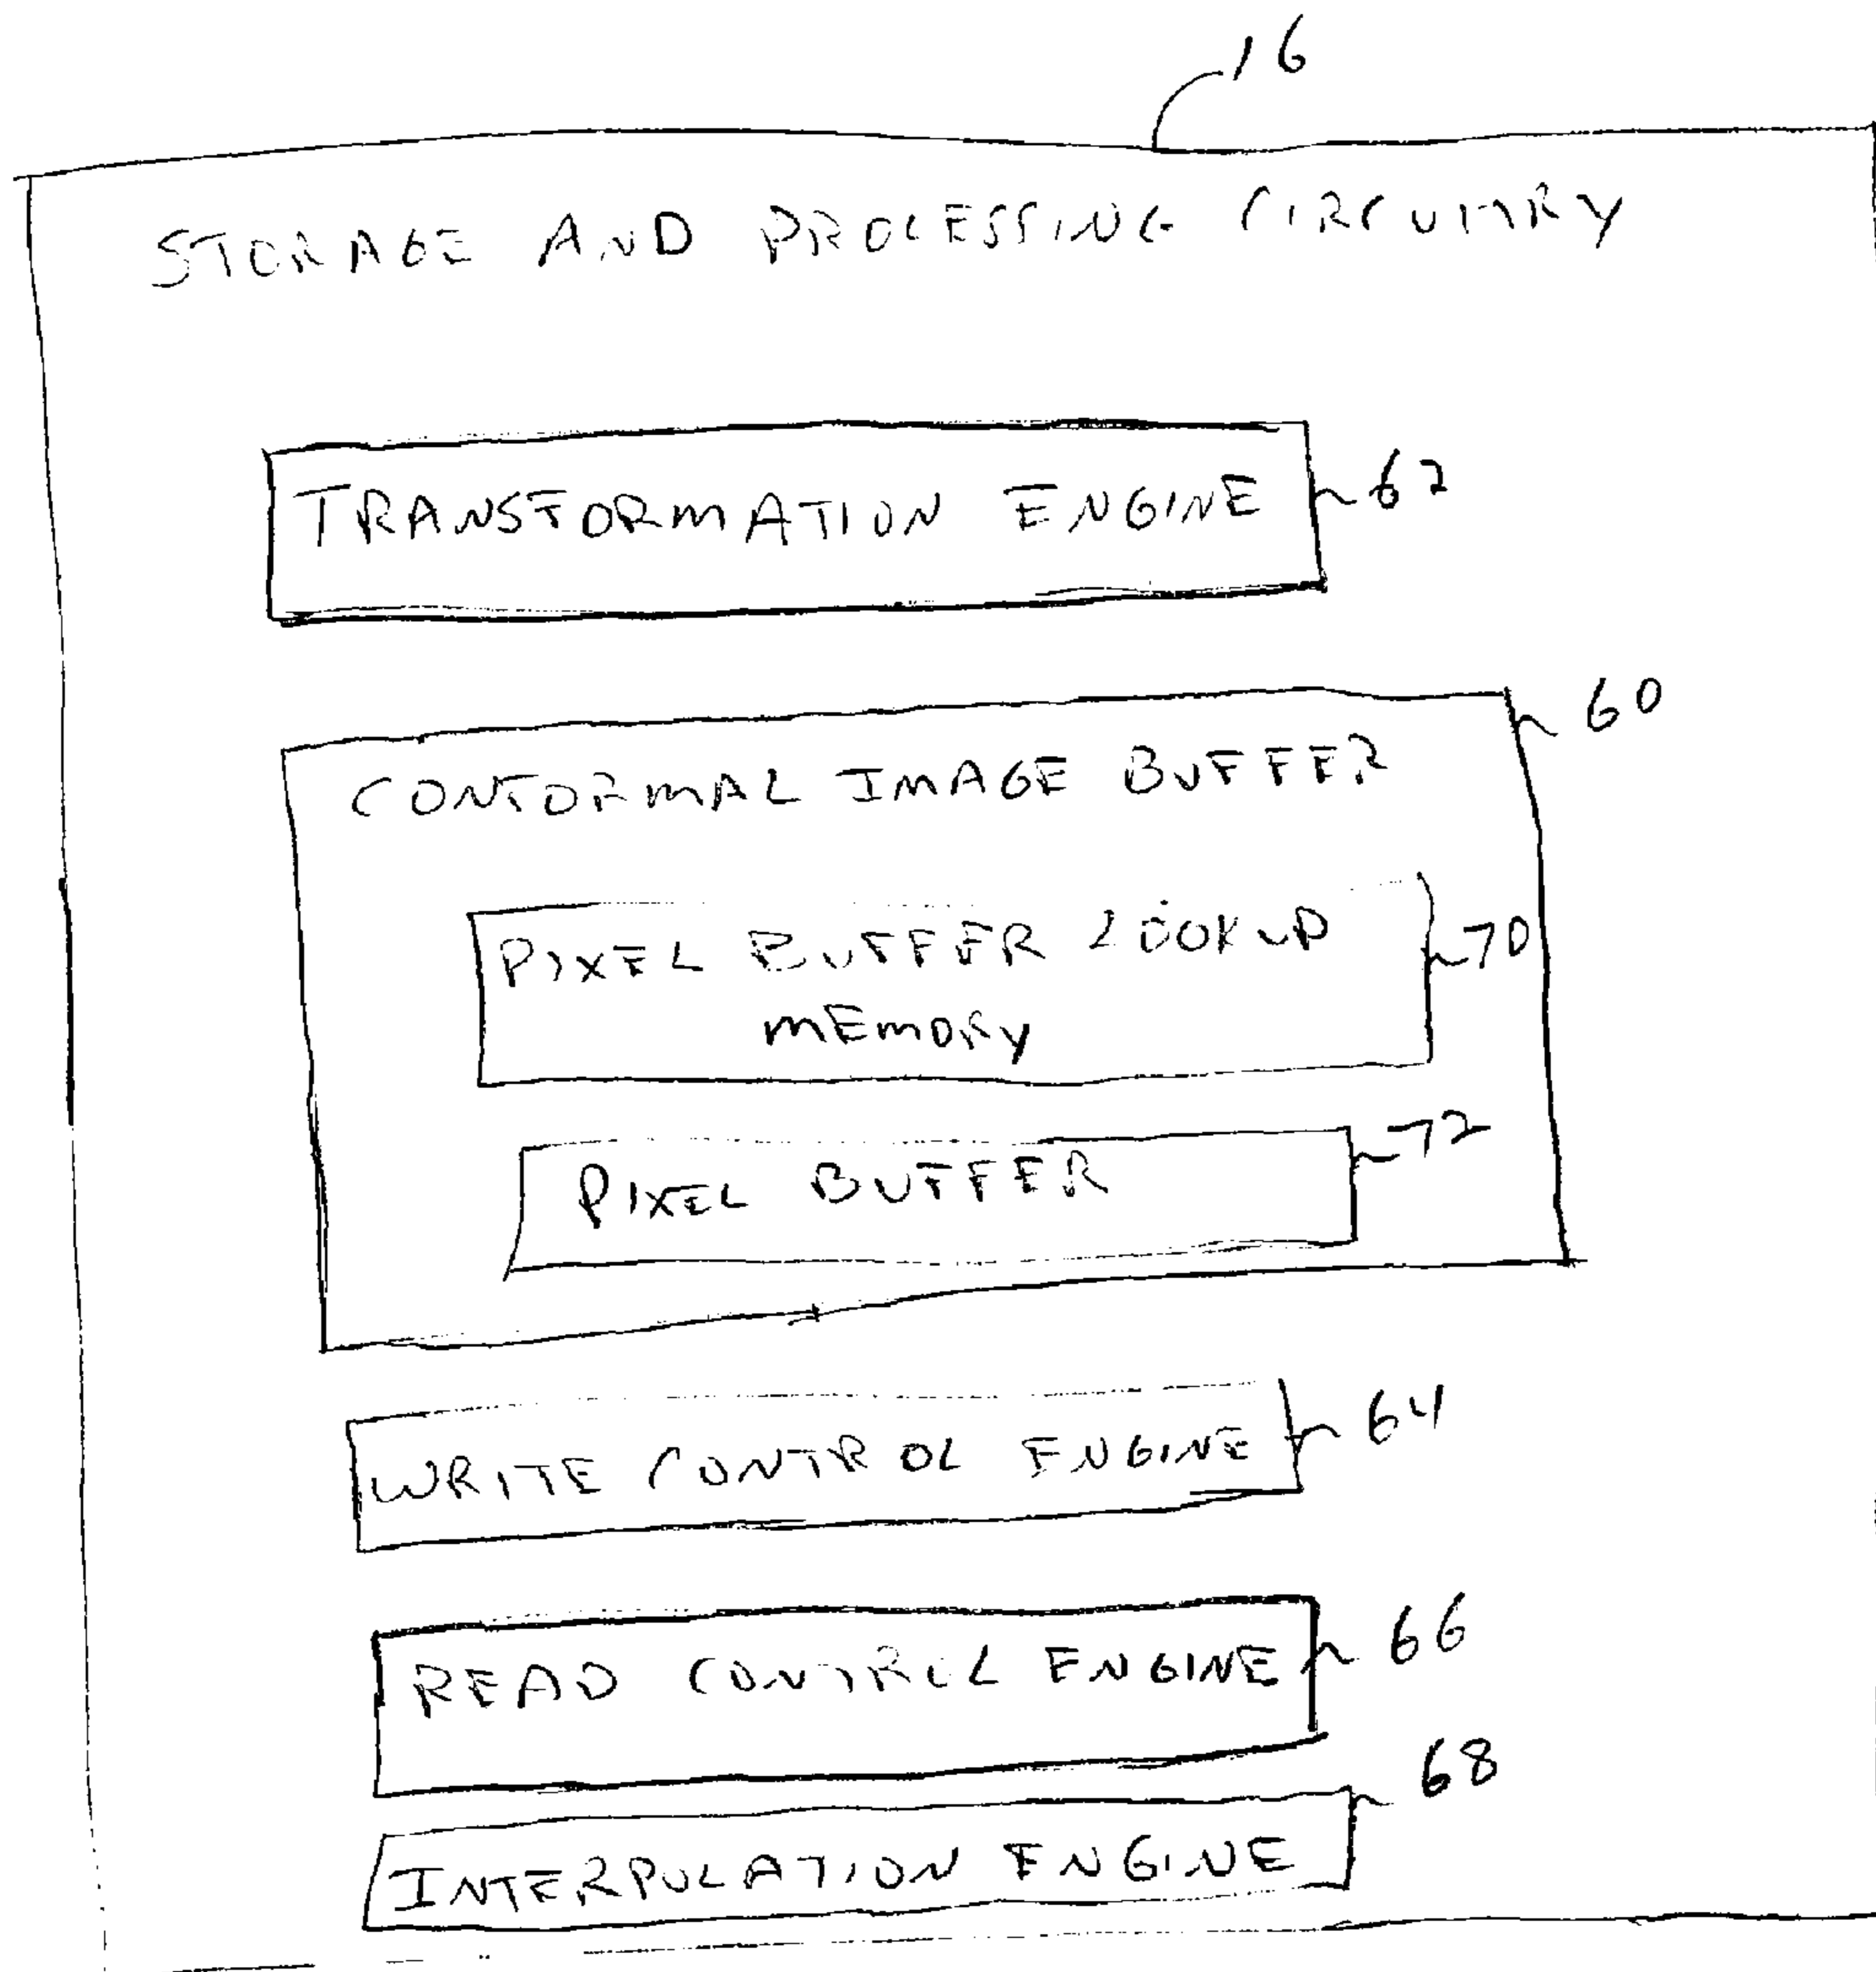 16
STORAGE AND PROCESSING CIRCUITRY
TRANSFORMATION ENGINE
62
60
CONFORMAL IMAGE BUFFER
PIXEL BUFFER LOOKUP
MEMORY
70
PIXEL BUFFER
72
WRITE CONTROL ENGINE
64
READ CONTROL ENGINE
66
INTERPOLATION ENGINE
68